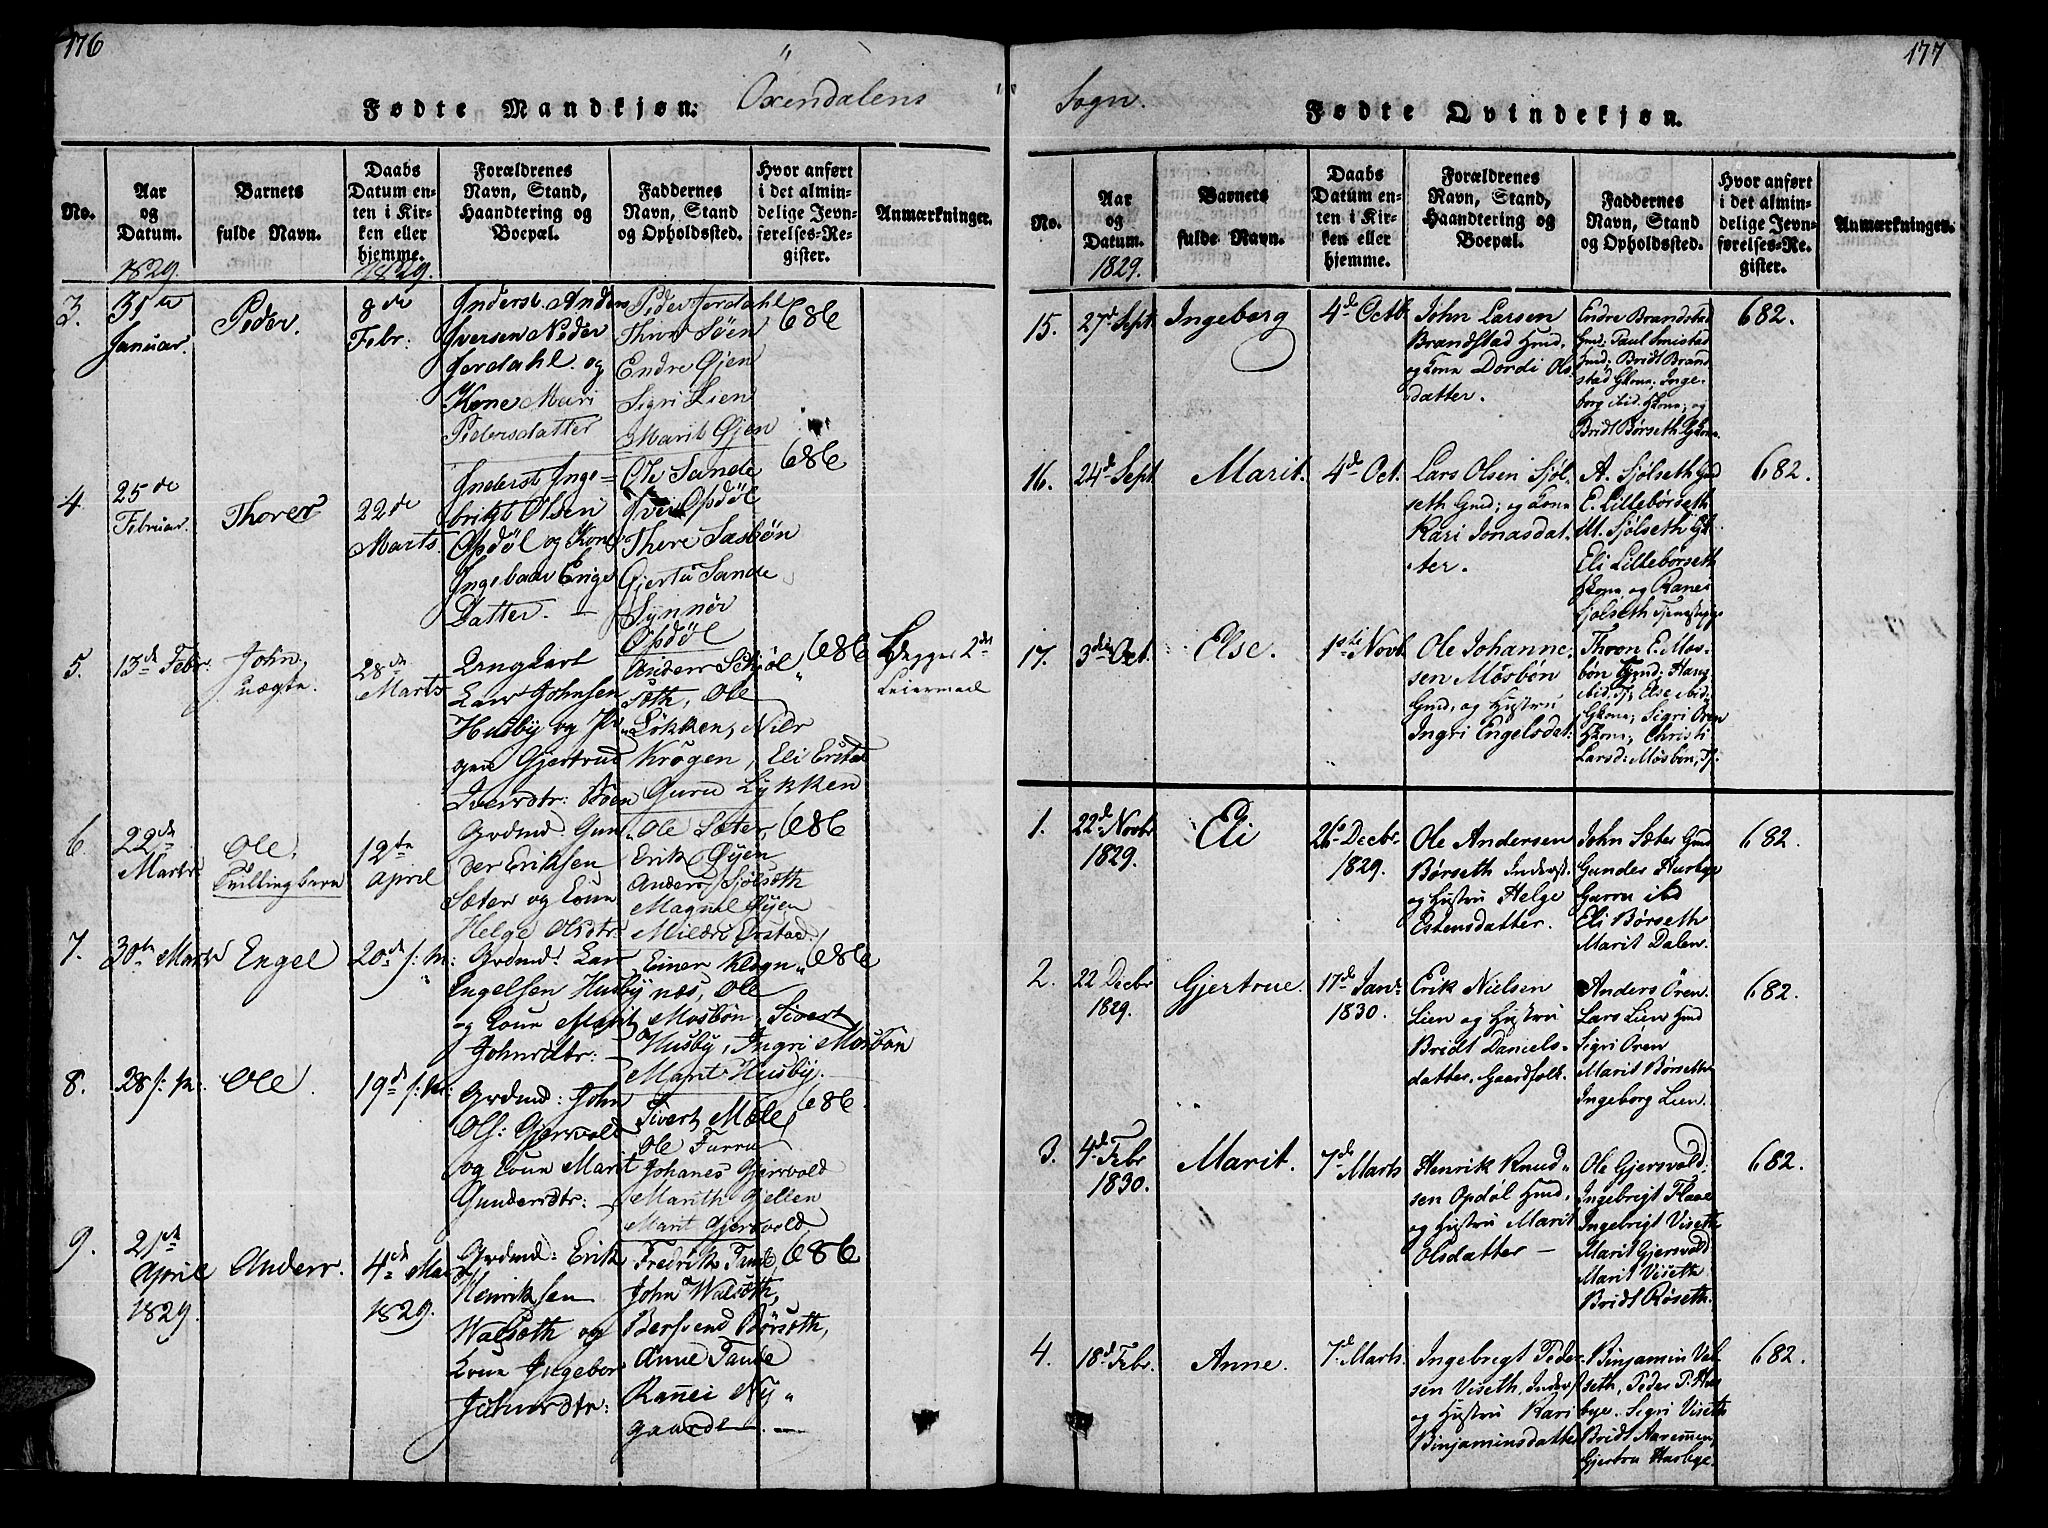 176
Öxendalens
Fødte Mandkjøn:
No.
Aar og Datum.
Barnets fulde Navn.
Daabs Datum enten i Kirken eller hjemme.
Forældrenes Navn, Stand, Haandtering og Boepæl.
Faddernes Navn, Stand og Opholdssted.
Hvor anført i det almindelige Jevnførelses-Register.
Anmærkninger.
1829.
1829.
3.
31te
Januar.
Peder.
8de
Febr:
Inderst Anders
Iversen Neder
Jordahl og
Kone Mari
Pedersdatter
Peder Jordahl
Thor Söen
Endre Øjen
Sigri Lien
Marit Øjen
686
4
25de
Februar.
Thorer
22de
Marts.
Inderst Inge=
brigt Olsen
Opdöl og Kone
Ingebaar
Datter.
Ole Sande
Iver Opdöl
Thore
Gjertu Sande
Synnör
Opdöl
686
5.
13de Febr:
John,
uægte.
28de
Marts
Ungkarl
Lars Johnsen
Husby og Pi
gen Gjertrud
Iversdtr:
Anders Schjöl
seth, Ole
Lökken, Nils
Krögen, Eli
Guru Lykken
686
Begges 2det
Leiermaal
6
22de
Marts
Ole,
Tvillingbarn
12te
April
Grdmd: Gun
der Eriksen
Sæter og Kone
Helge Olsdtr:
Ole Sæter,
Erik Øyen
Anders Sjölseth
Magnil Øyen
686
7.
30te Marts
Engel
20de s: m:
Grdmd: Lars
Engelsen Husby
og Kone Marit
Johnsdtr:
Einer
næs, Ole
Mosbön, Sivert
Husby, Ingri Mosbön
Marit Husby.
686
8.
28 s: m:
Ole.
19de s: m:
Grdmd: John
Ols: Gjersvold
og Kone Marit
Gundersdtr:
Sivert Mæle,
Ole Furru
Johanes Gjersvold
Marith Gjellen
Marit Gjersvold
686
9.
21de
April
1829
Anders.
4de Mai
1829.
Grdmd: Erik
Henriksen
Walseth og
Kone Ingebor
Johnsdtr:
Fredrik
John Walseth,
Bersvend Börseth,
Anne
Ranei Ny
gaarde
686
177
Sogn.
Fødte Qvindekjøn.
No.
Aar og Datum.
Barnets fulde Navn.
Daabs Datum enten i Kirken eller hjemme.
Forældrenes Navn, Stand, Haandtering og Boepæl.
Faddernes Navn, Stand og Opholdssted.
Hvor anført i det almindelige Jevnførelses-Register.
Anmærkninger.
1829.
15.
27de Sept
Ingeborg
4de Octb.
John Larsen
Brandstad Hmd.
og Kona Dordi Ols
datter.
Endre Brandstad
Gmd; Paul Smistad
Hmd; Bridt Brand
stad Gkone; Inge=
borg ibid. Hkone; og
Bridt Børseth Gkone
682.
16.
24de Sept
Marit.
4de Oct.
Lars Olsen Sjöl=
seth Gmd; og Kona
Kari Jonasdat
ter.
A. Sjölseth Gmd
E. Lillebørseth
M. Sjölseth
Eli Lillebørseth
Hkone og Ranei
Sjölseth
682.
17.
3die Oct.
Else.
1ste Novb.
Ole Johanne=
sen Mösbön
Gmd, og Hustru
Ingri Engelsdat:
Thron E. Mos=
bön Gmd; Hans
ibid. Else ibid:
Gkone; Sigri Ören
Hkone; Christi
Larsd: Mösbön,
1.
22de Novbr
1829.
Eli
26de Decbr.
1829.
Ole Andersen
Børseth Inderst
og Hustru Helge
Estensdatter.
John Sæter Gmd
Gunder
ibd
Eli Børseth
Marit Dalen.
682.
2.
22 Decbr
1829.
Gjertrue.
17de Jan.
1830.
Erik Nielsen
Lien og Hustru
Bridt Daniels=
datter. Gaardfolk.
Anders Ören
Lars Lien Gmd
Sigri Ören
Marit Børseth
Ingeborg Lien.
682.
3.
4de Febr
1830.
Marit.
7de Marts
Henrik Knud=
sen Opdøl Hmd.
og Hustru Marit
Olsdatter —
Ole Gjersvold.
Ingebrigt Flaae
Ingebrigt Viseth
Marit Gjersvold
Marit Viseth
Bridt Røseth.
682.
4.
18de Febr.
Anne.
7de Marts.
Ingebrigt Peder=
sen Viseth, Inderst
og Hustru Kari
Binjaminsdatter
Binjamin Vi=
seth, Peder P. Hus
bye. Sigri Viseth
Bridt
Gjertru Husbye.
682.